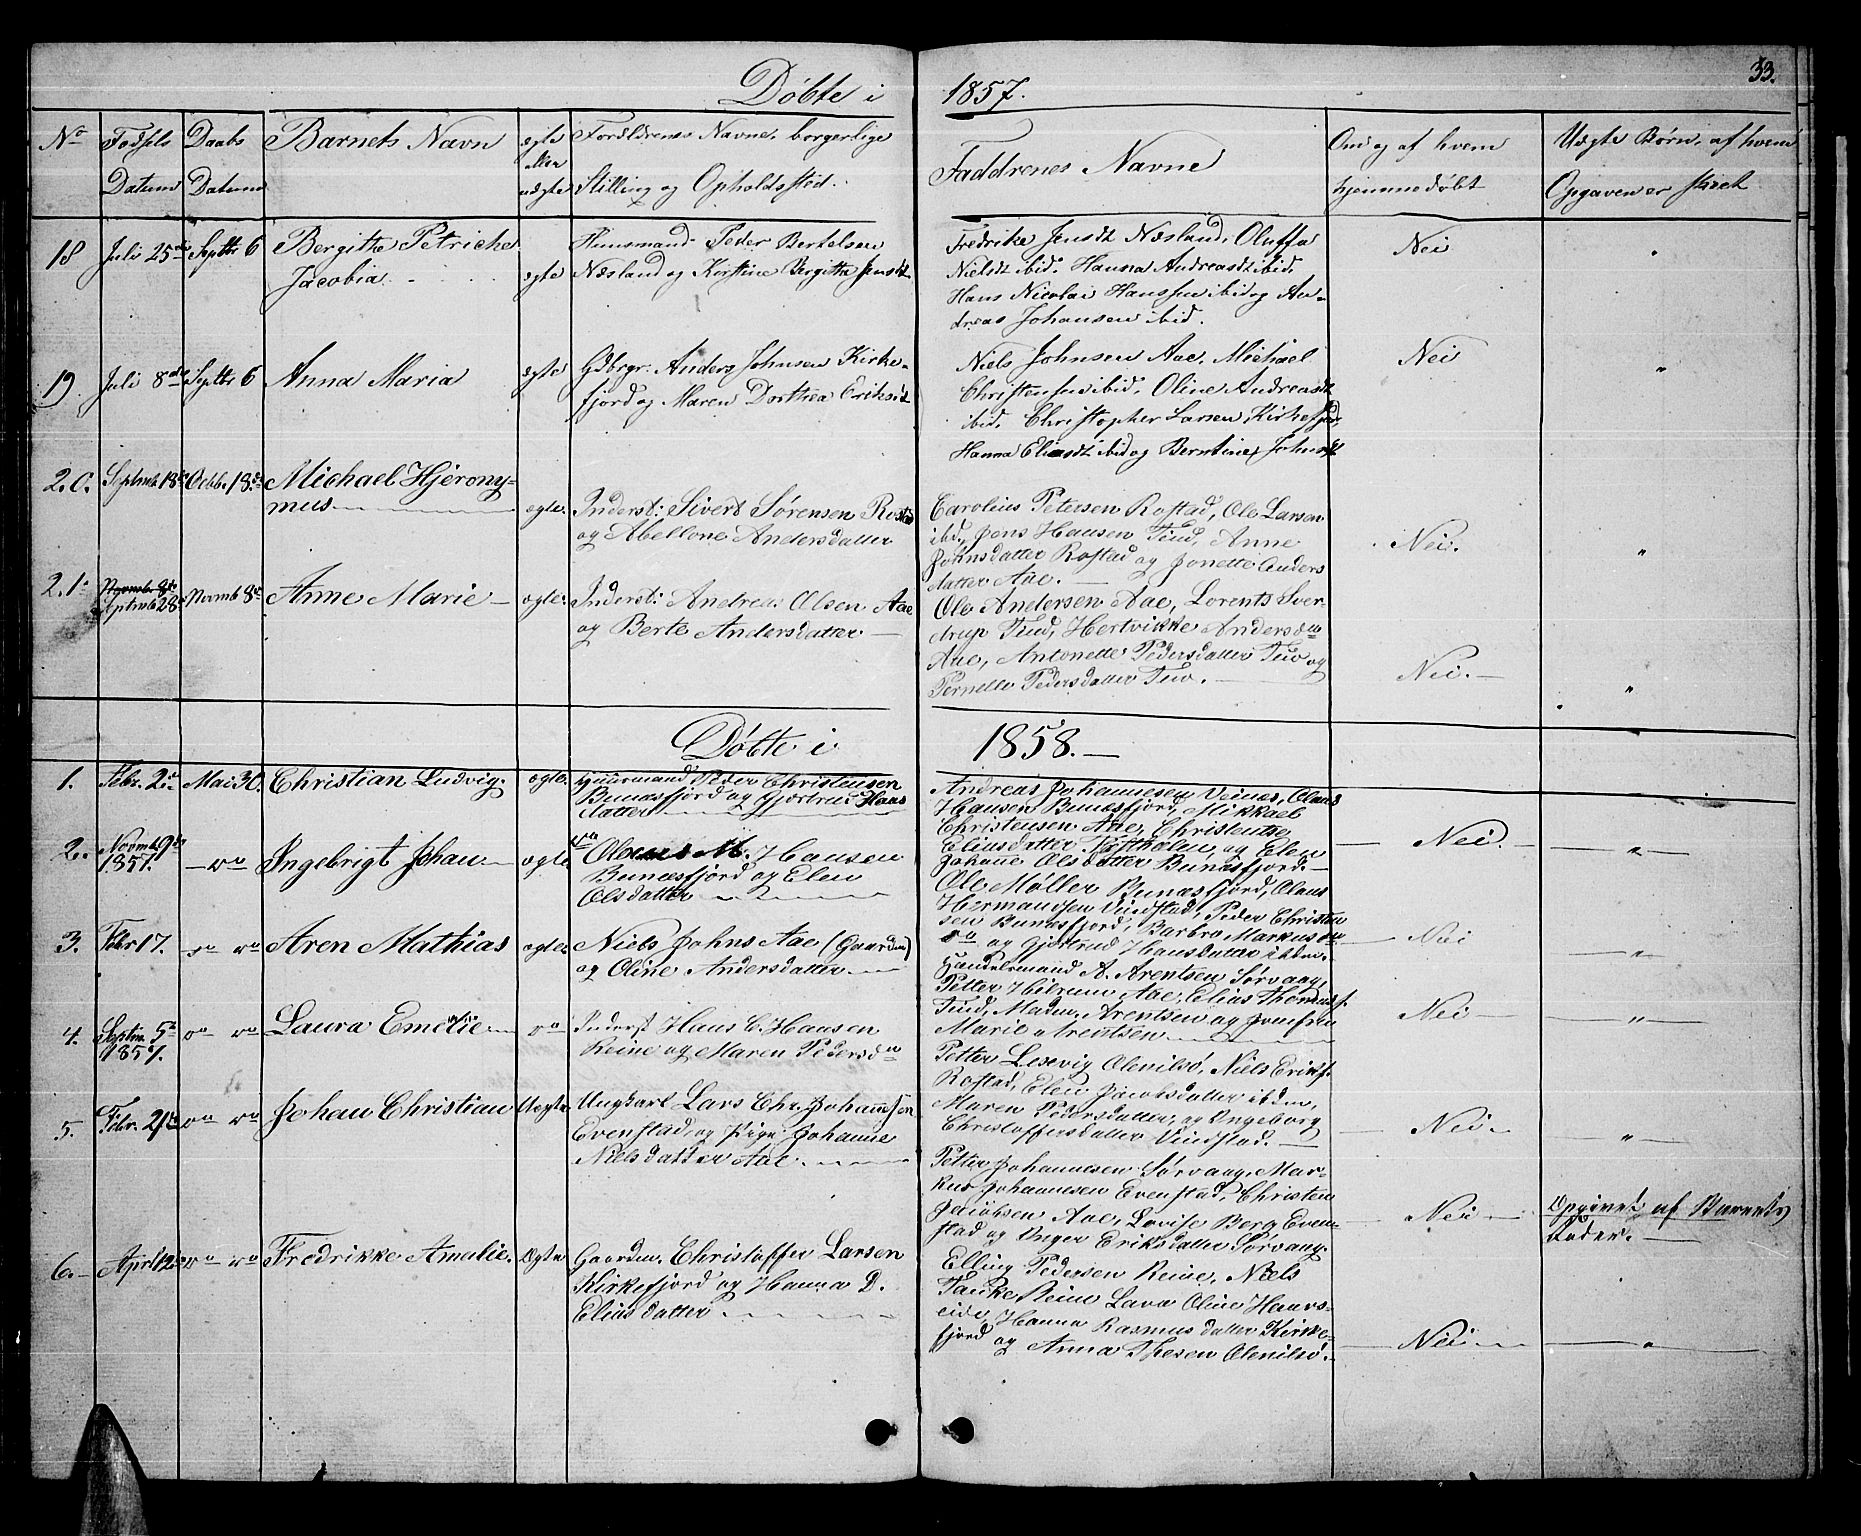 33.
Døbte i 1857.
No Fødsels Datum Daabs Datum Barnets Navn ægte eller uægte Forældrenes Navne, borgerlige Stilling og Opholdssted. Faddrenes Navne Om og af hvem hjemmedøbt Uægte Børn, af hvem Opgaven er skeet
18 Juli 25de Septbr 6 Bergitta Petriche
Jacobia
ægte
Huusmand Peder Bertelsen
Næsland og Kirstine Bergitta Jensdt
Fredrike Jensdt Næsland, Oluffa
Nielsdt ibid. Hanna Andreasdt ibid.
Hans Nicolai Hanssen ibid og An-
dreas Johansen ibid.
Nei
"
19 Juli 8de Septbr 6 Anna Maria ægte
Gdbrgr. Anders Johnsen Kirke-
fjord og Maren Dorthea Eriksdt
Niels Johnsen Aae, Michael
Christensen ibid, Oline Andreasdt
ibid, Christopher Larsen Kirkefjor
Hanna Eliasdt ibid og Berntine Johnsdt
Nei
"
20. Septmb. 18de Octb. 18de Michael Hjerony-
mus
ægte.
Inderst: Sivert Sørensen Rostad
og Abellone Andersdatter
Carolius Petersen Rostad, Ole Larsen
ibd, Jens Hansen Tind, Anne
Johnsdatter Rostad og Jonette Anders
datter Aae.
Nei.
"
21. Novmb. 8de
Septmb 28 Novmb 8de Anne Marie ægte.
Inderst: Andreas Olsen Aae
og Berte Andersdatter
Ole Andersen Aae, Lorents Sver-
drup Tind, Hertvikke Andersdtr
Aae, Antonette Pedersdatter Tind og
Pernelle Pedersdatter Tind.
Nei.
"
Døbte i 1858.
1. Febr. 2de Mai 30. Christian Ludvig. ægte.
Huusmand Peder Christensen
Bunæsfjord og Gjertrud Hans
datter
Andreas Johannesen Veines, Olaus
Hansen Bunæsfjord, Mikkael
Christensen Aae, Christentse
Eliasdatter Tofthalen og Elen
Johanne Olsdatter Bunæsfjord.
Nei.
"
2. Novmb. 9de
1857. do Ingebrigt Johan ægte
do Ole M. Hansen
Bunæsfjord og Elen
Olsdatter
Ole Møller Bunæsfjord, Olaus
Hermansen Vindstad, Peder Christen
sen Bunæsfjord, Barbro Markusdtr
do og Gjertrud Hansdatter ibden.
Nei
"
3. Febr 17. do do Aren Mathias ægte
Niels Johns Aae (Gaardm)
og Oline Andersdatter
Handelsmand A. Arentsen Sørvaag,
Petter Hilrum Aae, Elias Thomass.
Tind, Madm. Arentsen og Jomfru
Marie Arentsen
Nei
"
4. Septm. 5te
1857. do do Laura Emelie do
Inderst Hans C. Hansen
Reine og Maren Pedersdtr
Petter Lexvig Olenilsø, Niels Eriks.
Rostad, Elen Jacobsdatter ibden,
Maren Pedersdatter, og Ingeborg
Christoffersdatter Vindstad.
Nei
"
5. Febr. 21de do do Johan Christian Uægte
Ungkarl Lars Chr. Johannesen
Evenstad og Pige Johanne
Nielsdatter Aae.
Petter Johannesen Sørvaag, Mar-
kus Johannesen Evenstad, Christen
Jacobsen Aae, Lovise Berg Even-
stad og Inger Eriksdatter Sørvaag.
Nei
Opgivet af Barnets
Fader.
6. April 12te do do Fredrikke Amalie. Ægte
Gaardm. Christoffer Larsen
Kirkefjord og Hanna D.
Eliasdatter
Elling Pedersen Reine, Niels
Tanke Reine Lava Oline Haars-
eide, Hanna Rasmusdatter Kirke-
fjord og Anna Thesen Olenilsø.
Nei
"